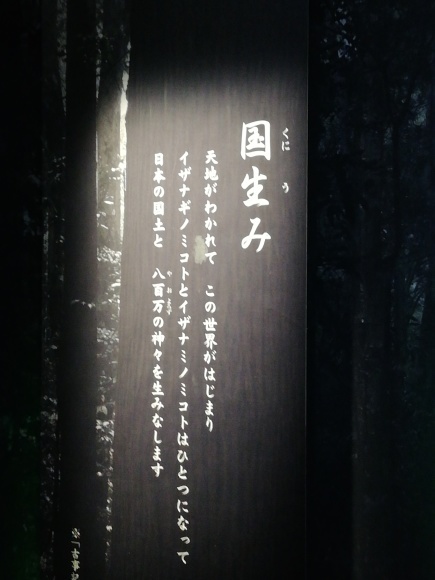 国生み
くに う
天地がわかれて この世界がはじまり
イザナギノミコトとイザナミノミコトはひとつになって
日本の国土と 八百万の神々を生みなします
やおよろず
※「古事記